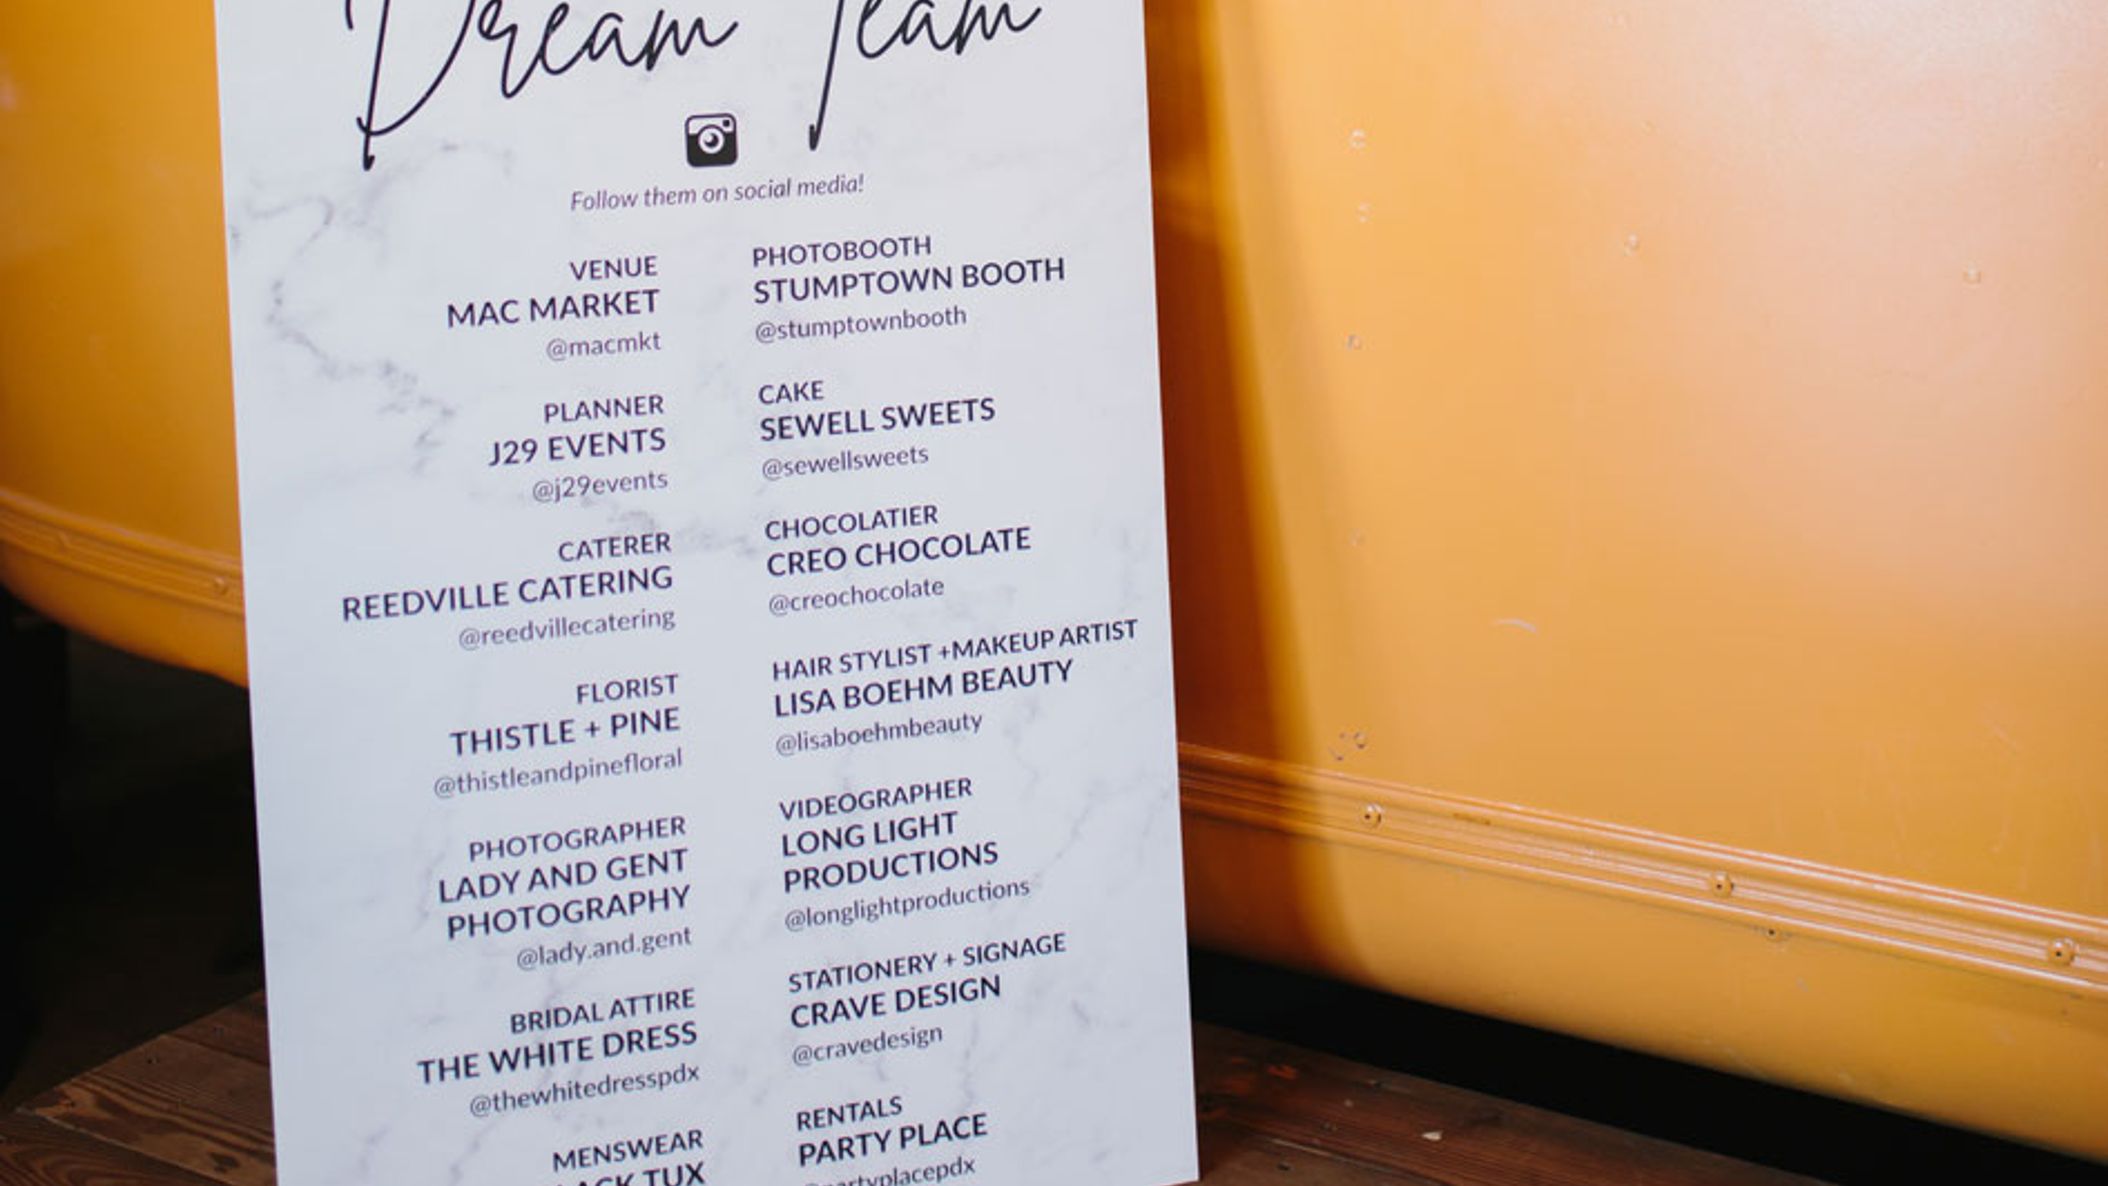 Dream Team
Follow them on social media!
VENUE
MAC MARKET
@macmkt
PLANNER
J29 EVENTS
@j29events
CATERER
REEDVILLE CATERING
@reedvillecatering
FLORIST
THISTLE + PINE
@thistleandpinefloral
PHOTOGRAPHER
LADY AND GENT
PHOTOGRAPHY
@lady.and.gent
BRIDAL ATTIRE
THE WHITE DRESS
@thewhitedresspdx
MENSWEAR
TUX
PHOTOBOOTH
STUMPTOWN BOOTH
@stumptownbooth
CAKE
SEWELL SWEETS
@sewellsweets
CHOCOLATIER
CREO CHOCOLATE
@creochocolate
HAIR STYLIST +MAKEUP ARTIST
LISA BOEHM BEAUTY
@lisaboehmbeauty
VIDEOGRAPHER
LONG LIGHT
PRODUCTIONS
@longlightproductions
STATIONERY + SIGNAGE
CRAVE DESIGN
@cravedesign
RENTALS
PARTY PLACE